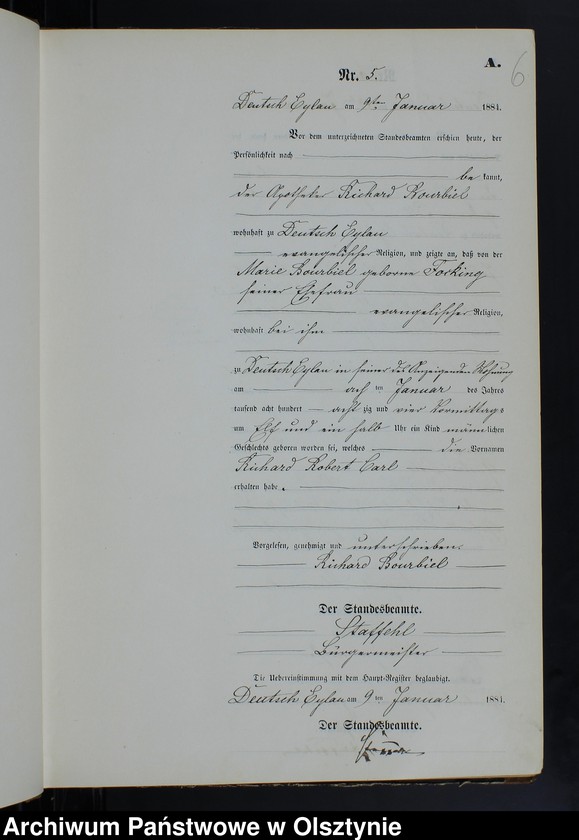 A.
6
Nr. 5.
Deutsch Eylau am 9ten Januar 1884.
Vor dem unterzeichneten Standesbeamten erschien heute, der
Persönlichkeit nach
be kannt,
der Apotheker Richard Bourbiel
wohnhaft zu Deutsch Eylau
evangelischer Religion, und zeigte an, daß von der
Marie Bourbiel geborne Focking
seiner Ehefrau
evangelischer Religion,
wohnhaft bei ihm
zu Deutsch Eylau in seiner des Anzeigenden Wohnung
am acht ten Januar des Jahres
tausend acht hundert acht zig und vier Vormittags
um Elf und ein halb Uhr ein Kind männlichen
Geschlechts geboren worden sei, welches die Vornamen
Richard Robert Carl
erhalten habe.
Vorgelesen, genehmigt und unterschrieben.
Richard Bourbiel
Der Standesbeamte.
Staffehl
Bürgermeister
Die Uebereinstimmung mit dem Haupt-Register beglaubigt.
Deutsch Eylau am 9 ten Januar 1884.
Der Standesbeamte.
Archiwum Państwowe w Olsztynie